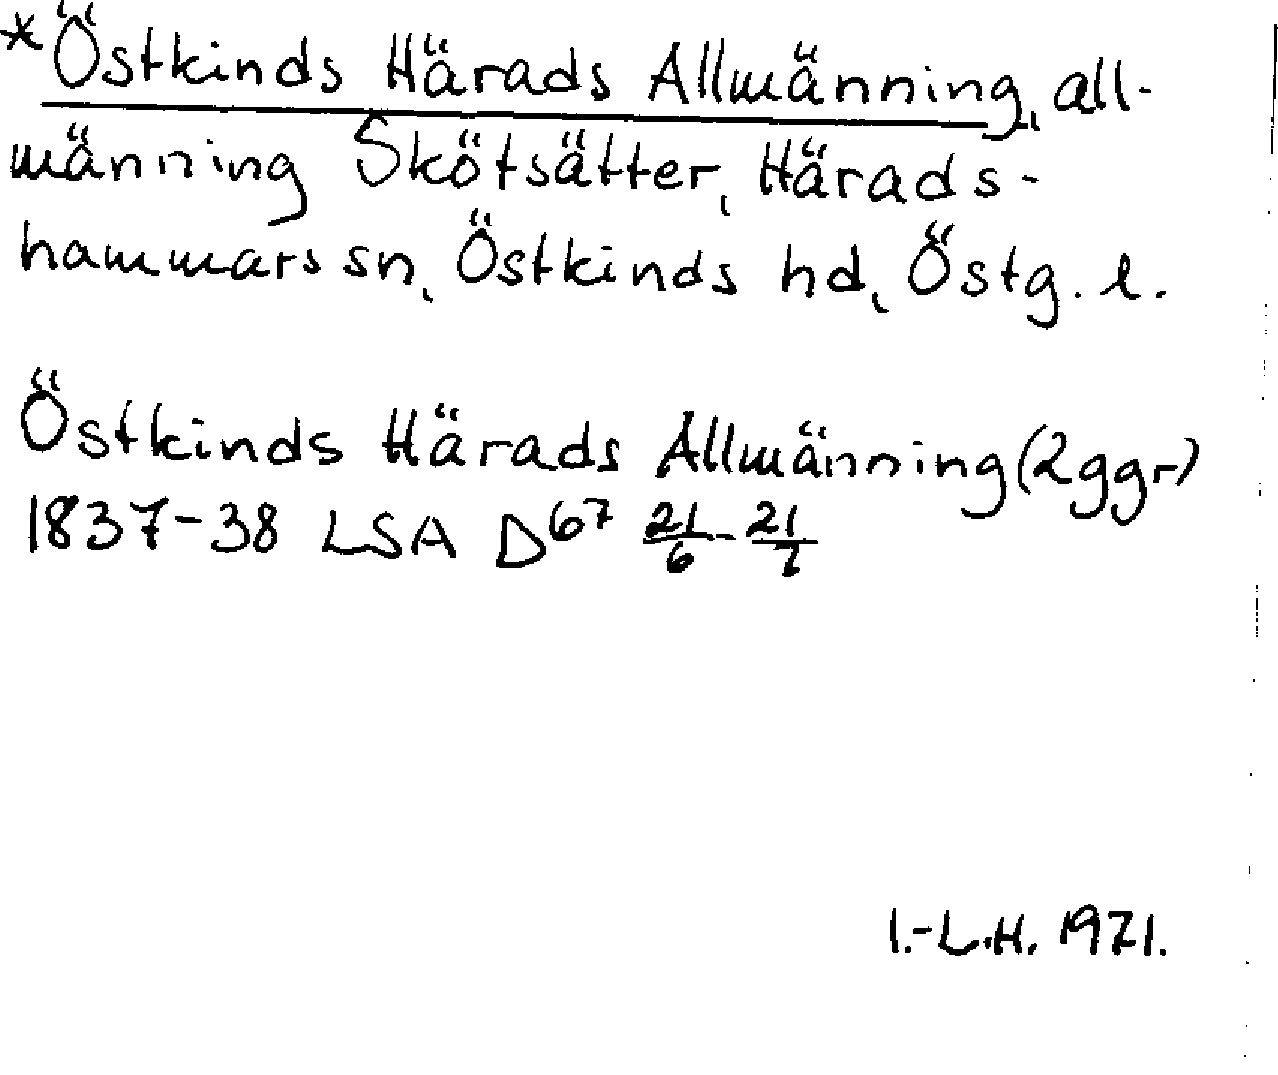 *Östkinds Härads Allmänning, all-
männing Skötsätter, Härads-
hammars sn, Östkinds hd, Östg. l.
Östkinds Härads Allmänning (2ggr)
1837-38 LSA D67 21/6-21/7
I.-L.H. 1971.